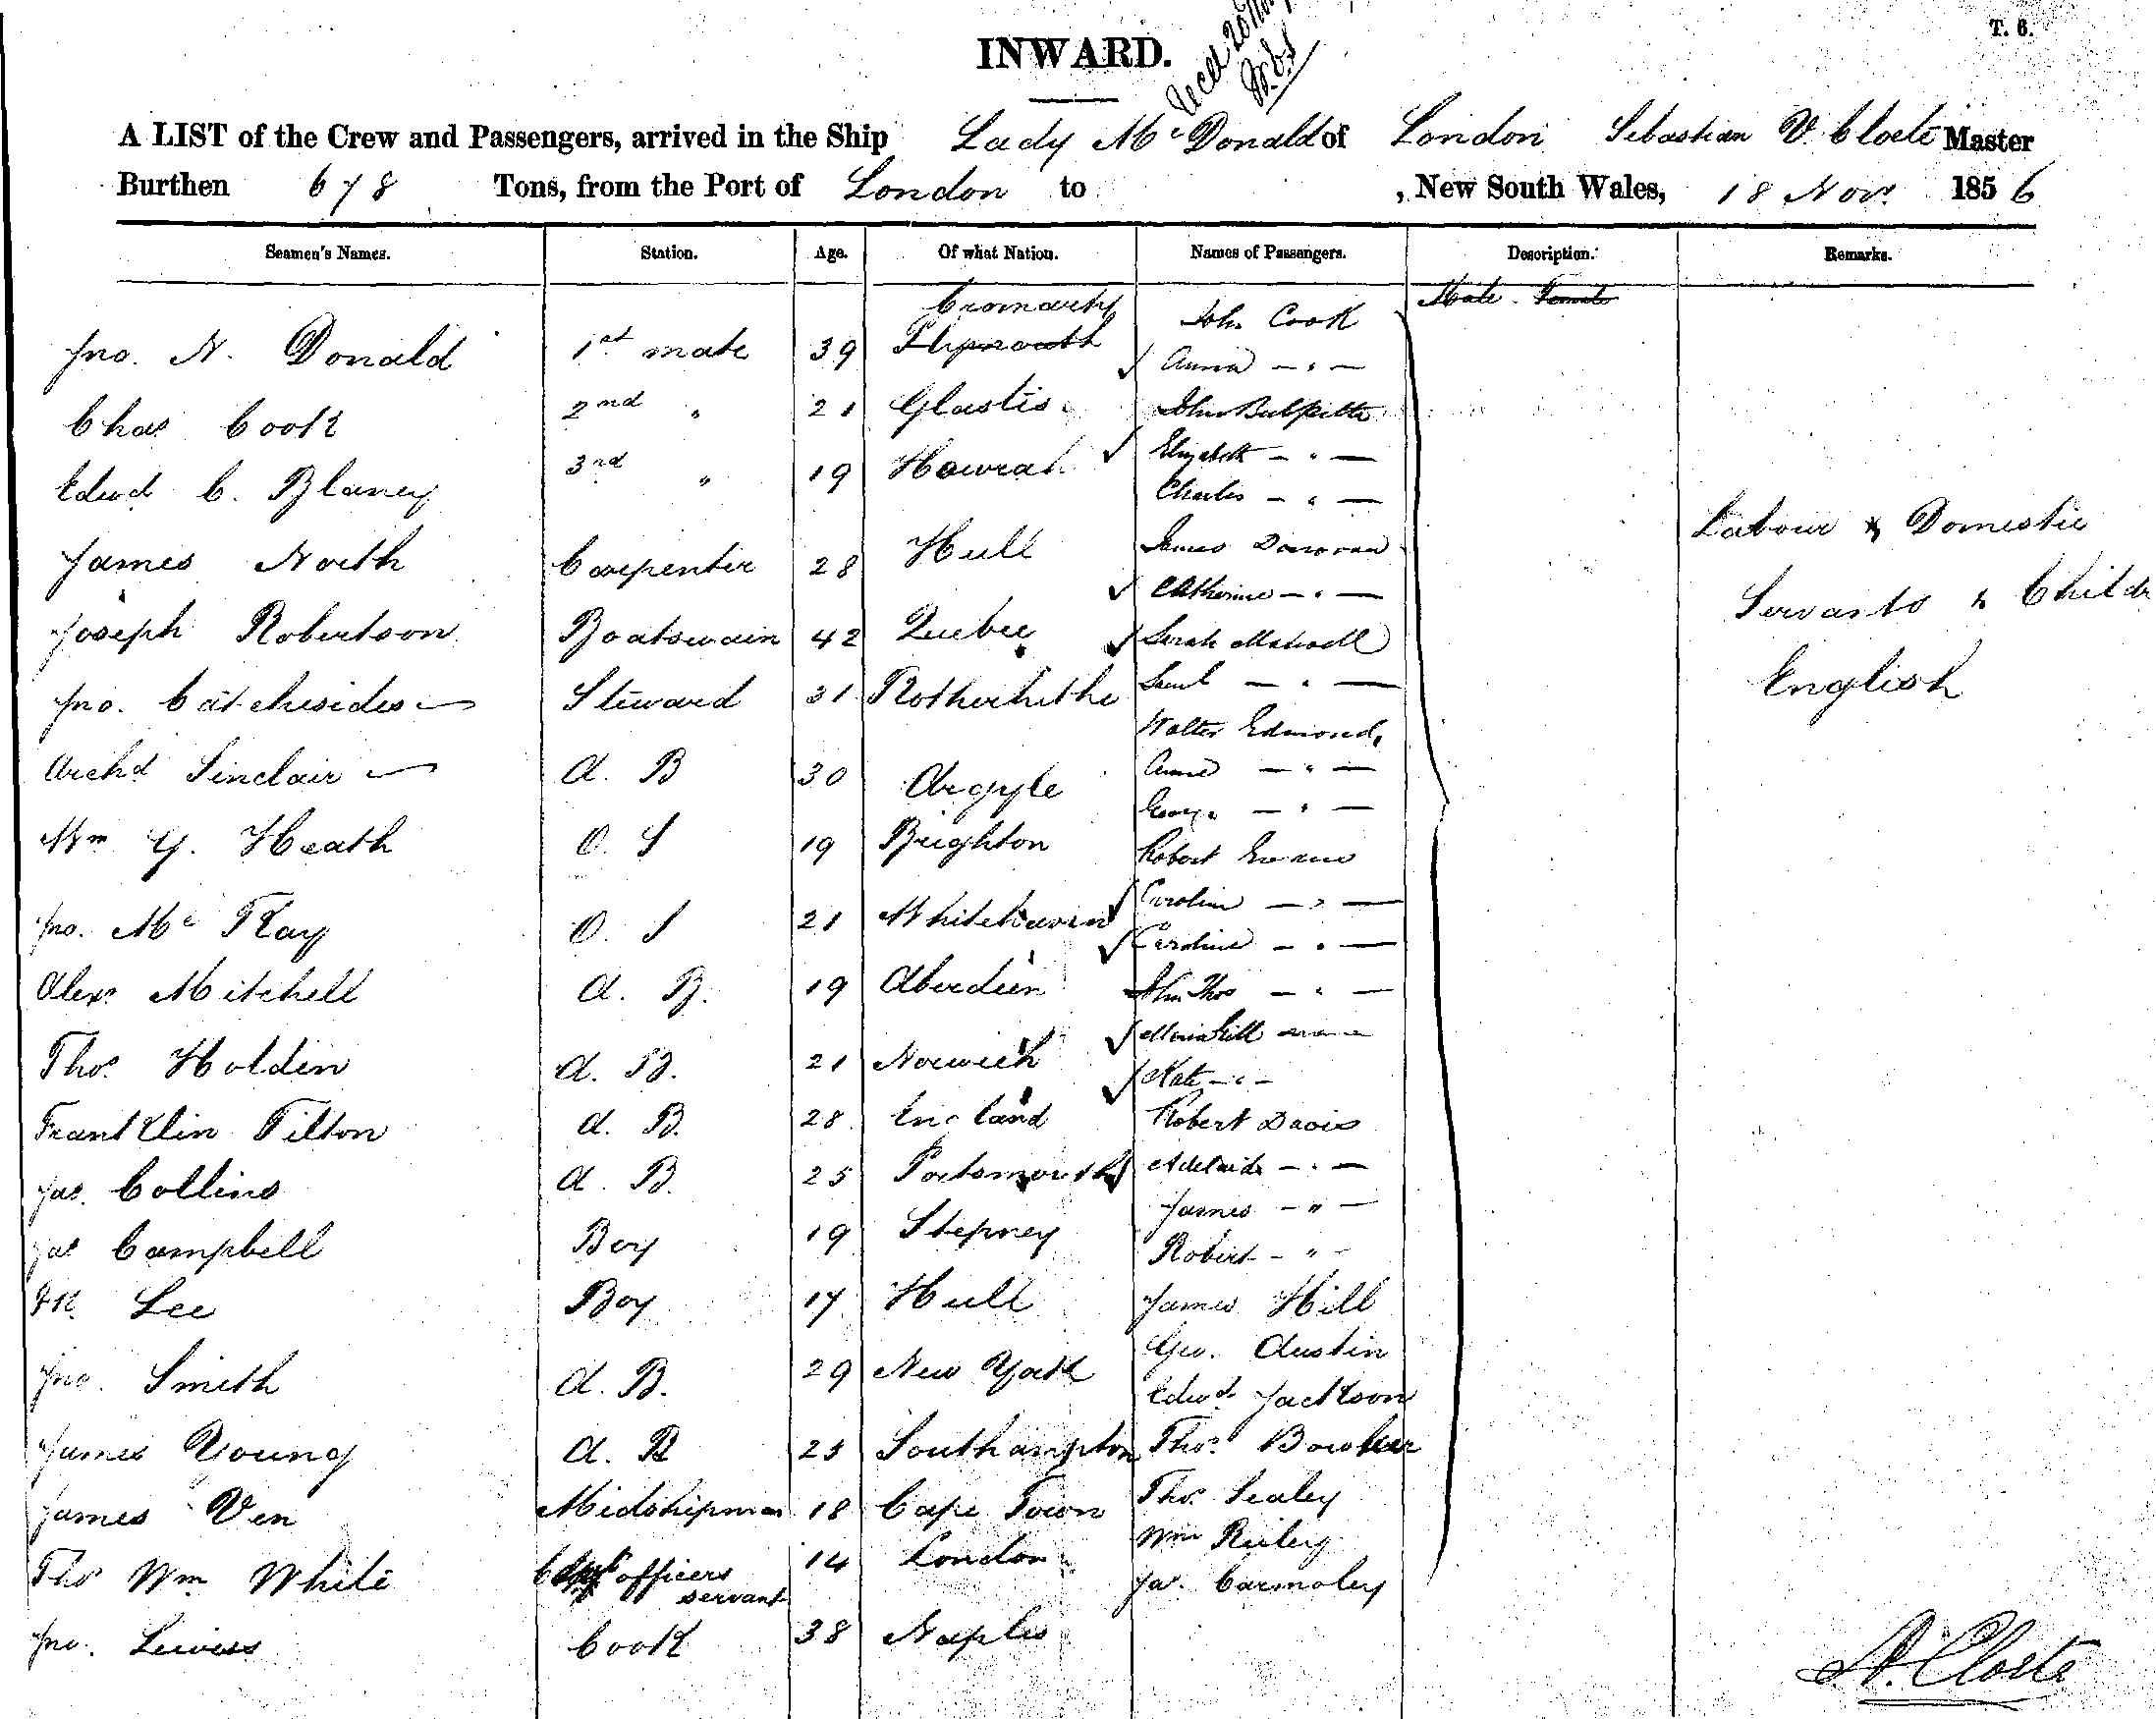 T. 6.
INWARD.
A LIST of the Crew and Passengers, arrived in the Ship Lady Mc Donald of London Sebastian V. Cloete Master
Burthen 678 Tons, from the Port of London to , New South Wales, 18 Nov. 1856
Seamen's Names. Station. Age. Of what Nation. Names of Passengers. Description. Remarks.
Male. Female
Cromarty John Cook
Jno. N. Donald 1st mate 39 Plymouth Anna — " —
Chas Cook 2nd " 21 John Bulpitt
Elizabeth — " —
Edwd C. Blaney 3rd " 19 Howrah Charles — " —
James North Carpenter 28 Hull James Donovan
Catherine — " —
Labour & Domestic
Servants &
English
Joseph Robertson Boatswain 42 Quebec Sarah
Jno. Catchesides Steward 31 Rotherhithe — " —
Walter Edmonds
Archd Sinclair A. B 30 Argyle Anne — " —
George — " —
Wm G. Heath O. S 19 Brighton Robert Evans
Jno. Mc Kay O. S 21 Whitehaven Caroline — " —
Caroline — " —
Alexr Mitchell A. B. 19 Aberdeen John Thos — " —
Thos. Holden A. B. 21 Norwich
Kate — " —
Franklin Tilton A. B. 28 England Robert Davis
Jas. Collins A. B. 25 Portsmouth Adelaide — " —
James — " —
Jas Campbell Boy 19 Stepney Robert — " —
Fk. Lee Boy 17 Hull James Hill
Geo. Austin
Jno. Smith A. B. 29 New York Edwd Jackson
James Young A. B 25 Southampton Thos. Bowker
James Ven Midshipman 18 Cape Town Thos. Sealey
Wm Reiley
Thos Wm White officers servant 14 London Jas. Carmoley
Jno. Lewess Cook 38 Naples
S. V. Cloete